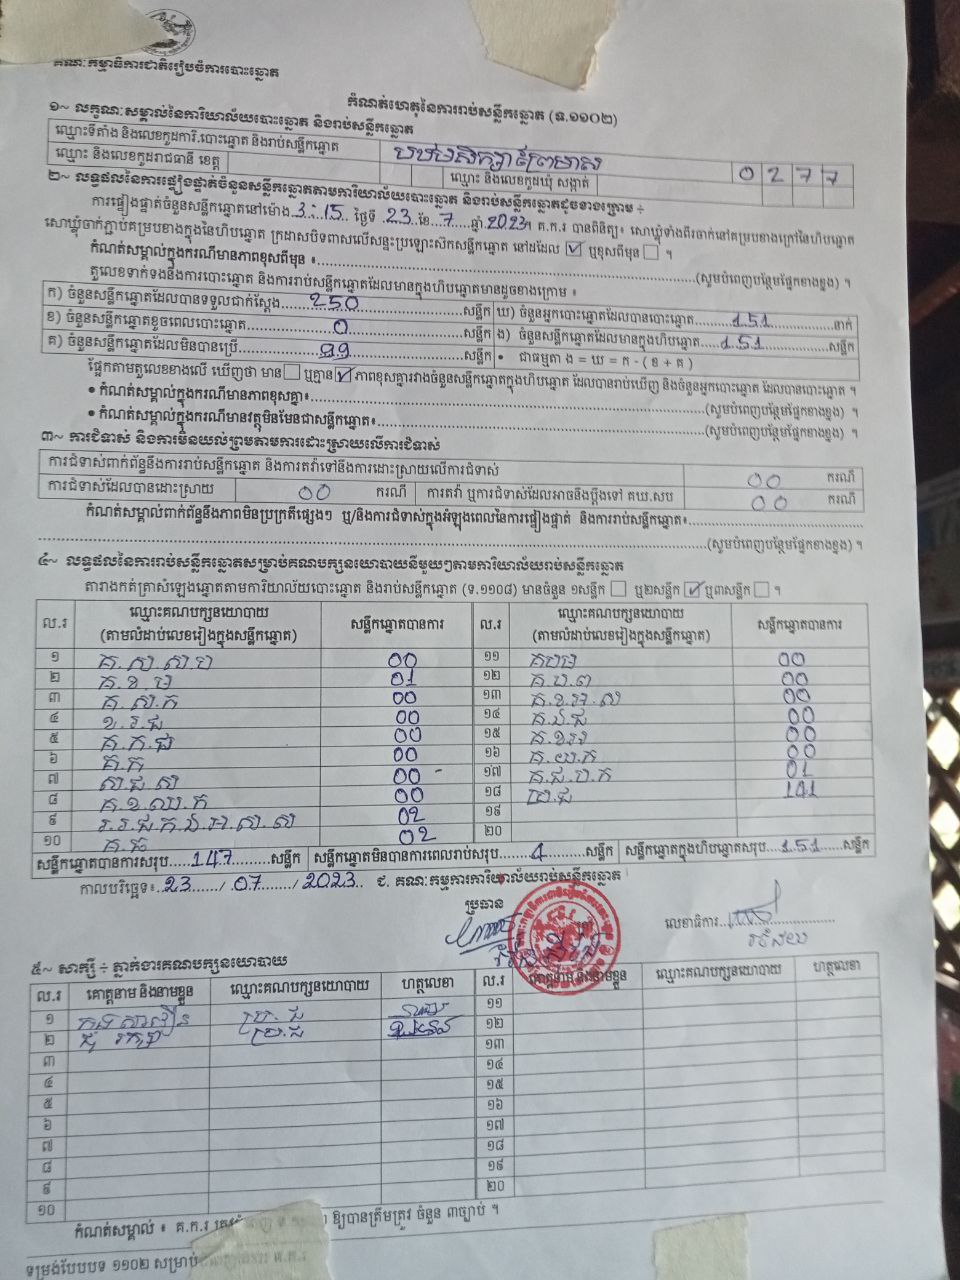 គណៈកម្មាធិការជាតិរៀបចំការបោះឆ្នោត
កំណត់ហេតុនៃការរាប់សន្លឹកឆ្នោត (ទ.១១០២)
១~ លក្ខណៈសម្គាល់នៃការិយាល័យបោះឆ្នោត និងរាប់សន្លឹកឆ្នោត
ឈ្មោះទីតាំង និងលេខកូដការិ.បោះឆ្នោត និងរាប់សន្លឹកឆ្នោត 0277
ឈ្មោះ និងលេខកូដរាជធានី ខេត្ត ឈ្មោះ និងលេខកូដឃុំ សង្កាត់
២~ លទ្ធផលនៃការផ្ទៀងផ្ទាត់ចំនួនសន្លឹកឆ្នោតតាមការិយាល័យបោះឆ្នោត និងរាប់សន្លឹកឆ្នោតដូចខាងក្រោម ÷
ការផ្ទៀងផ្ទាត់ចំនួនសន្លឹកឆ្នោតនៅម៉ោង 3:15 ថ្ងៃទី 23 ខែ 7 ឆ្នាំ 2023។ គ.ក.រ បានពិនិត្យ៖ សោឃ្លុំទាំងពីរចាក់នៅគម្របខាងក្រៅនៃហិបឆ្នោត
សោឃ្លុំចាក់ភ្ជាប់គម្របខាងក្នុងនៃហិបឆ្នោត ក្រដាសបិទពាសលើសន្ទះប្រឡោះសិកសន្លឹកឆ្នោត នៅដដែល ☑ ឬខុសពីមុន ☐ ។
កំណត់សម្គាល់ក្នុងករណីមានភាពខុសពីមុន ៖ (សូមបំពេញបន្ថែមផ្នែកខាងខ្នង) ។
តួលេខទាក់ទងនឹងការបោះឆ្នោត និងការរាប់សន្លឹកឆ្នោតដែលមានក្នុងហិបឆ្នោតមានដូចខាងក្រោម ៖
ក) ចំនួនសន្លឹកឆ្នោតដែលបានទទួលជាក់ស្តែង 250 សន្លឹក ឃ) ចំនួនអ្នកបោះឆ្នោតដែលបានបោះឆ្នោត 151 នាក់
ខ) ចំនួនសន្លឹកឆ្នោតខូចពេលបោះឆ្នោត 0 សន្លឹក ង) ចំនួនសន្លឹកឆ្នោតដែលមានក្នុងហិបឆ្នោត 151 សន្លឹក
គ) ចំនួនសន្លឹកឆ្នោតដែលមិនបានប្រើ 99 សន្លឹក • ជាធម្មតា ង = ឃ = ក - ( ខ + គ )
ផ្អែកតាមតួលេខខាងលើ ឃើញថា មាន ☐ ឬគ្មាន ☑ ភាពខុសគ្នារវាងចំនួនសន្លឹកឆ្នោតក្នុងហិបឆ្នោត ដែលបានរាប់ឃើញ និងចំនួនអ្នកបោះឆ្នោត ដែលបានបោះឆ្នោត ។
• កំណត់សម្គាល់ក្នុងករណីមានភាពខុសគ្នា៖ (សូមបំពេញបន្ថែមផ្នែកខាងខ្នង) ។
• កំណត់សម្គាល់ក្នុងករណីមានវត្ថុមិនមែនជាសន្លឹកឆ្នោត៖ (សូមបំពេញបន្ថែមផ្នែកខាងខ្នង) ។
៣~ ការជំទាស់ និងការមិនយល់ព្រមតាមការដោះស្រាយលើការជំទាស់
ការជំទាស់ពាក់ព័ន្ធនឹងការរាប់សន្លឹកឆ្នោត និងការតវ៉ាទៅនឹងការដោះស្រាយលើការជំទាស់ 00 ករណី
ការជំទាស់ដែលបានដោះស្រាយ 00 ករណី ការតវ៉ា ឬការជំទាស់ដែលអាចនឹងប្តឹងទៅ គឃ.សប 00 ករណី
កំណត់សម្គាល់ពាក់ព័ន្ធនឹងភាពមិនប្រក្រតីផ្សេងៗ ឬ/និងការជំទាស់ក្នុងអំឡុងពេលនៃការផ្ទៀងផ្ទាត់ និងការរាប់សន្លឹកឆ្នោត៖
(សូមបំពេញបន្ថែមផ្នែកខាងខ្នង) ។
៤~ លទ្ធផលនៃការរាប់សន្លឹកឆ្នោតសម្រាប់គណបក្សនយោបាយនីមួយៗតាមការិយាល័យរាប់សន្លឹកឆ្នោត
តារាងកត់ត្រាសំឡេងឆ្នោតតាមការិយាល័យបោះឆ្នោត និងរាប់សន្លឹកឆ្នោត (ទ.១១០៨) មានចំនួន ១សន្លឹក ☐ ឬ២សន្លឹក ☑ ឬ៣សន្លឹក ☐ ។
ល.រ ឈ្មោះគណបក្សនយោបាយ (តាមលំដាប់លេខរៀងក្នុងសន្លឹកឆ្នោត) សន្លឹកឆ្នោតបានការ ល.រ ឈ្មោះគណបក្សនយោបាយ (តាមលំដាប់លេខរៀងក្នុងសន្លឹកឆ្នោត) សន្លឹកឆ្នោតបានការ
១ គ.ស.ស.ប 00 ១១ 00
២ គ.ខ.ម 01 ១២ គ.ប.ព 00
៣ គ.ស.ក 00 ១៣ គ.ខ.អ.ស 00
៤ ខ.រ.ជ 00 ១៤ គ.ង.ជ 00
៥ គ.ក.ជ 00 ១៥ 00
៦ គ.ក 00 ១៦ គ.យ.ក 00
៧ ស.ជ.ស 00 ១៧ គ.ជ.ប.ក 01
៨ គ.ខ.ឈ.ក 00 ១៨ ប្រ.ជ 141
៩ 02 ១៩
១០ គ.ធ 02 ២០
សន្លឹកឆ្នោតបានការសរុប 147 សន្លឹក សន្លឹកឆ្នោតមិនបានការពេលរាប់សរុប 4 សន្លឹក សន្លឹកឆ្នោតក្នុងហិបឆ្នោតសរុប 151 សន្លឹក
កាលបរិច្ឆេទ៖ 23 / 07 / 2023 ជ. គណៈកម្មការការិយាល័យរាប់សន្លឹកឆ្នោត
ប្រធាន
លេខាធិការ
៥~ សាក្សី ÷ ភ្នាក់ងារគណបក្សនយោបាយ
ល.រ គោត្តនាម និងនាមខ្លួន ឈ្មោះគណបក្សនយោបាយ ហត្ថលេខា ល.រ គោត្តនាម និងនាមខ្លួន ឈ្មោះគណបក្សនយោបាយ ហត្ថលេខា
១ ប្រ.ជ ១១
២ ប្រ.ជ ១២
៣ ១៣
៤ ១៤
៥ ១៥
៦ ១៦
៧ ១៧
៨ ១៨
៩ ១៩
១០ ២០
កំណត់សម្គាល់ ៖ គ.ក.រ ឱ្យបានត្រឹមត្រូវ ចំនួន ៣ច្បាប់ ។
ទម្រង់បែបបទ ១១០២ សម្រាប់